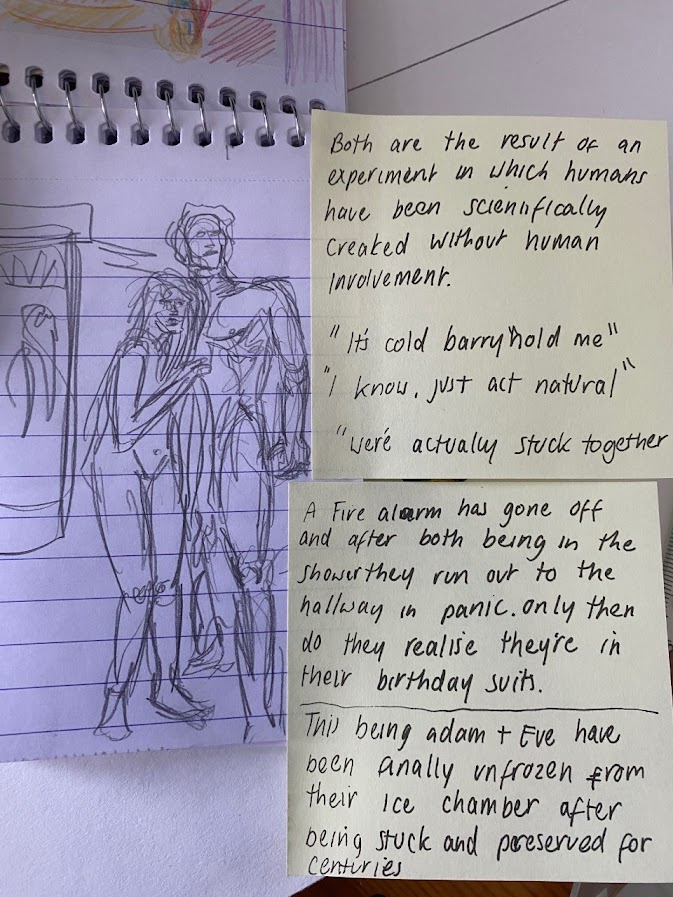 Both are the result of an
experiment in which humans
have been scienifically
created without human
involvement.
"It's cold barry"hold me"
"I know, just act natural"
"we're actually stuck together
A Fire alarm has gone off
and after both being in the
showerthey run out to the
hallway in panic. only then
do they realise they're in
their birthday suits.
This being adam + Eve have
been finally unfrozen from
their ice chamber after
being stuck and preserved for
centuries